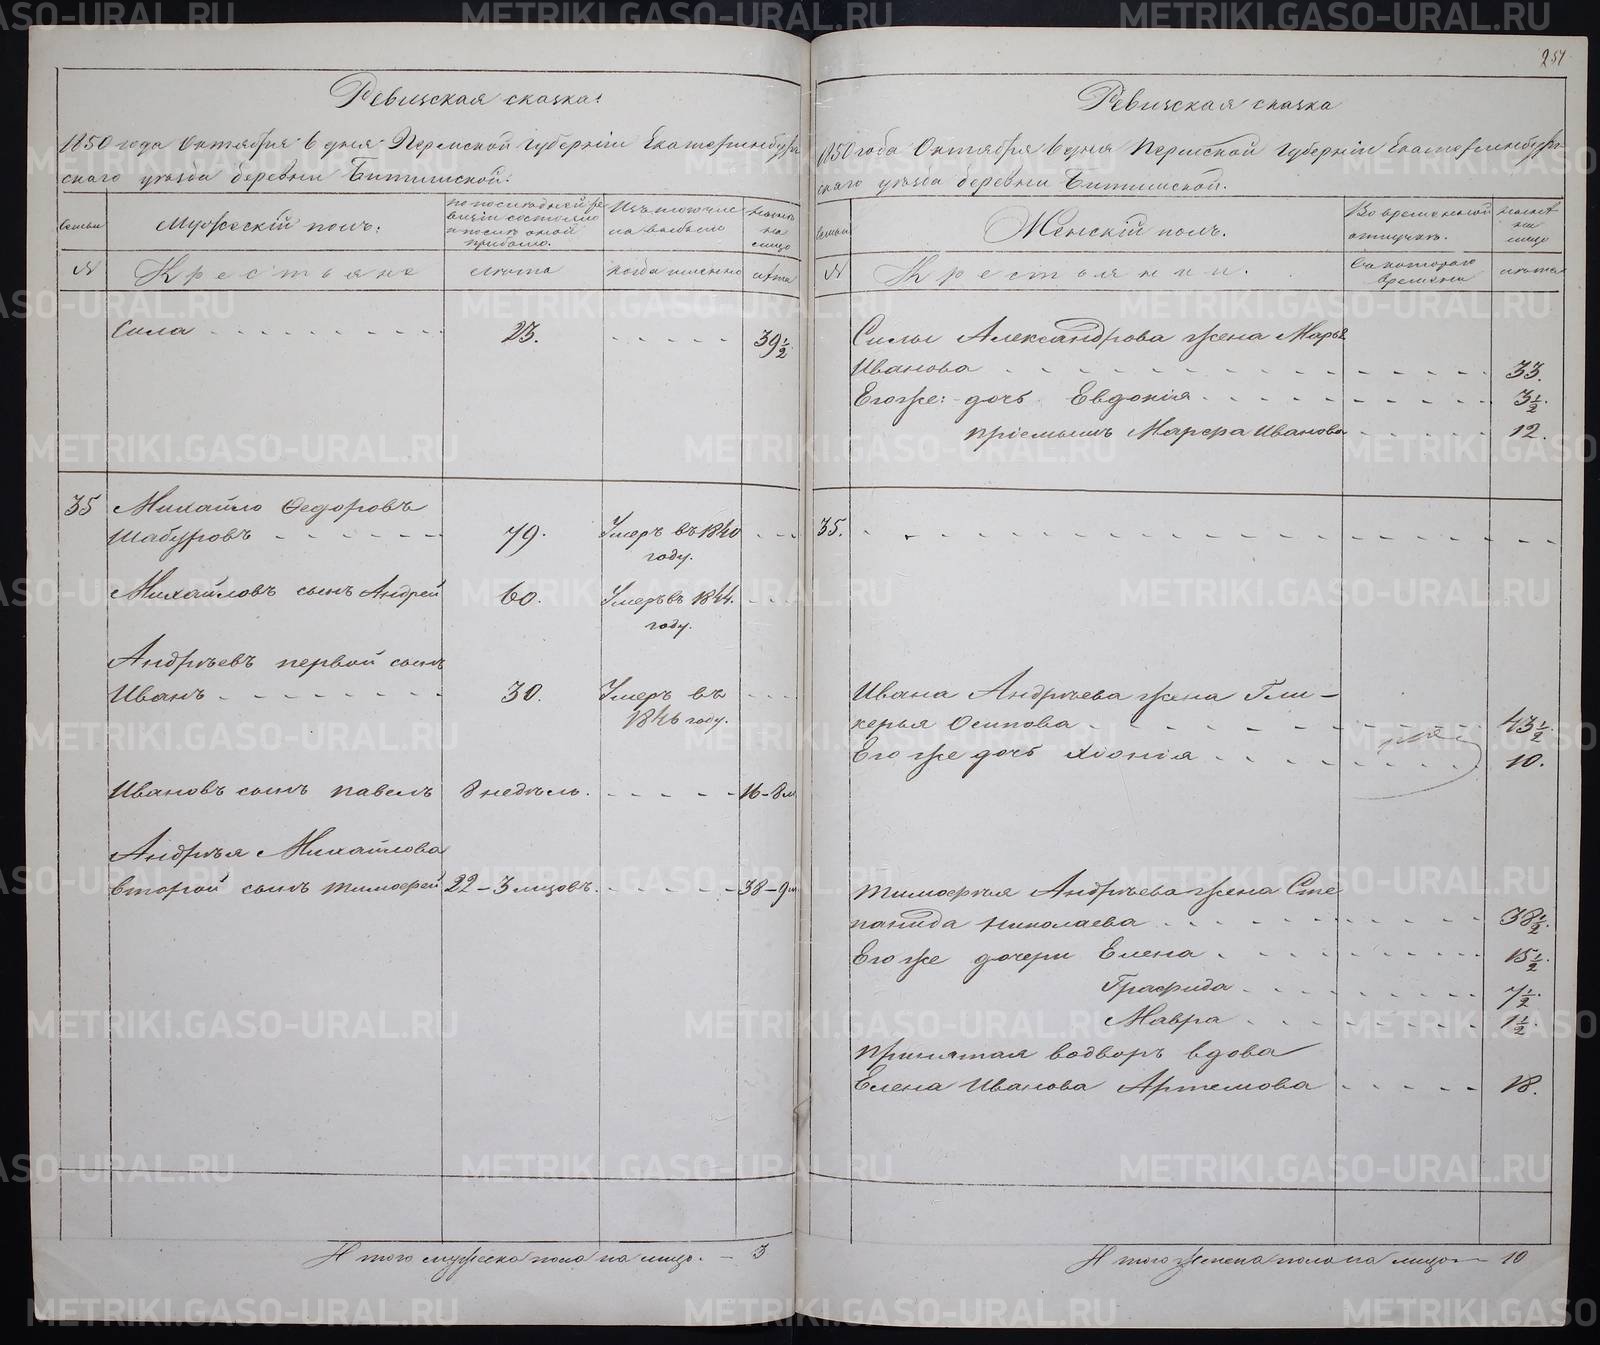 251
Ревизская сказка:
1850 года Октября 6 дня Пермской Губерніи Екатеринбург
скаго уѣзда деревни Битимской:
семьи
Мужескій полъ:
по последней ре
визіи состояло
и послѣ оной
прибыло.
Изъ того чис
ла выбыло
ныне
на
лицо
№
Крестьяне
лѣта
когда именно
лѣта
Сила - - - - - 23. - - - - - 39 1/2
35 Михайло Федоровъ
Шабуровъ - - - - - - 79. Умеръ въ 1840 - - -
году.
Михайловъ сынъ Андрей 60. Умеръ въ 1844. - - -
году.
Андрѣевъ первой сынъ
Иванъ - - - - - - 30. Умеръ въ - - -
1846 году.
Ивановъ сынъ Павелъ 8 недѣль. - - - - - 16-8 м
Андрѣя Михайлова
второй сынъ Тимофей 22-3 мцовъ. - - - - - 38-9 м
Итого мужеска пола на лицо. - 3
Ревизская сказка
1850 года Октября 6 дня Пермской Губерніи Екатеринбург
скаго уѣзда деревни Битимской.
семьи
Женскій полъ.
Во временной
отлучкѣ.
ныне
на
лицо
№
Крестьянки.
Съ котораго
времени
лѣта
Силы Александрова жена Марья
Иванова - - - - - - 33.
Его же: дочь Евдокія - - - - - - 3 1/2.
пріемышъ Марфа Иванова - - - - - 12.
35. - - - - - -
Ивана Андрѣева жена Гли-
керья Осипова - - - - - - 43 1/2.
Его же дочь Хіонія - - - - - - 10.
Тимофѣя Андрѣева жена Сте
панида Николаева - - - - - - 38 1/2.
Его же дочери Елена - - - - - - 15 1/2.
Графида - - - - - - 7 1/2.
Мавра - - - - - - 1 1/2.
Принятая во дворъ вдова
Елена Иванова Артемова - - - - - 18.
Итого женска пола на лицо - 10
METRIKI.GASO-URAL.RU